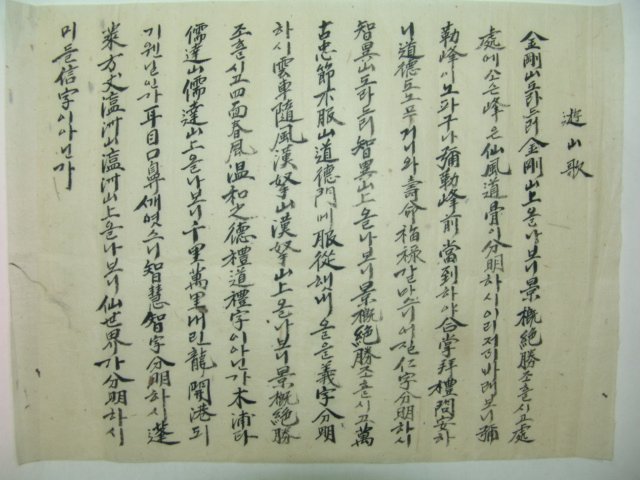 遊山歌
金剛山도라드러金剛山上올나보니景槪絶勝조흘시고處
處에소슨峰은仙風道骨이分明하시이리저리바래보니彌
勒峰이노파구나彌勒峰前當到하야合掌拜禮問安하
니道德도노푸거니와壽命福祿갈마스니어질仁字分明하시
智異山도라드러智異山上올나보니景槪絶勝조흘시고萬
古忠節不服山道德門에服從해내올은義字分明
하시雲車隨風漢拏山漢拏山上올나보니景槪絶勝
조흘시고四面春風溫和之德禮道禮字이아닌가木浦라
儒達山儒達山上올나보니千里萬里내린龍開港되
기웬일인가耳目口鼻생엿스니智慧智字分明하시蓬
萊方丈瀛洲山瀛洲山上올나보니仙世界가分明하시
미들信字이아닌가